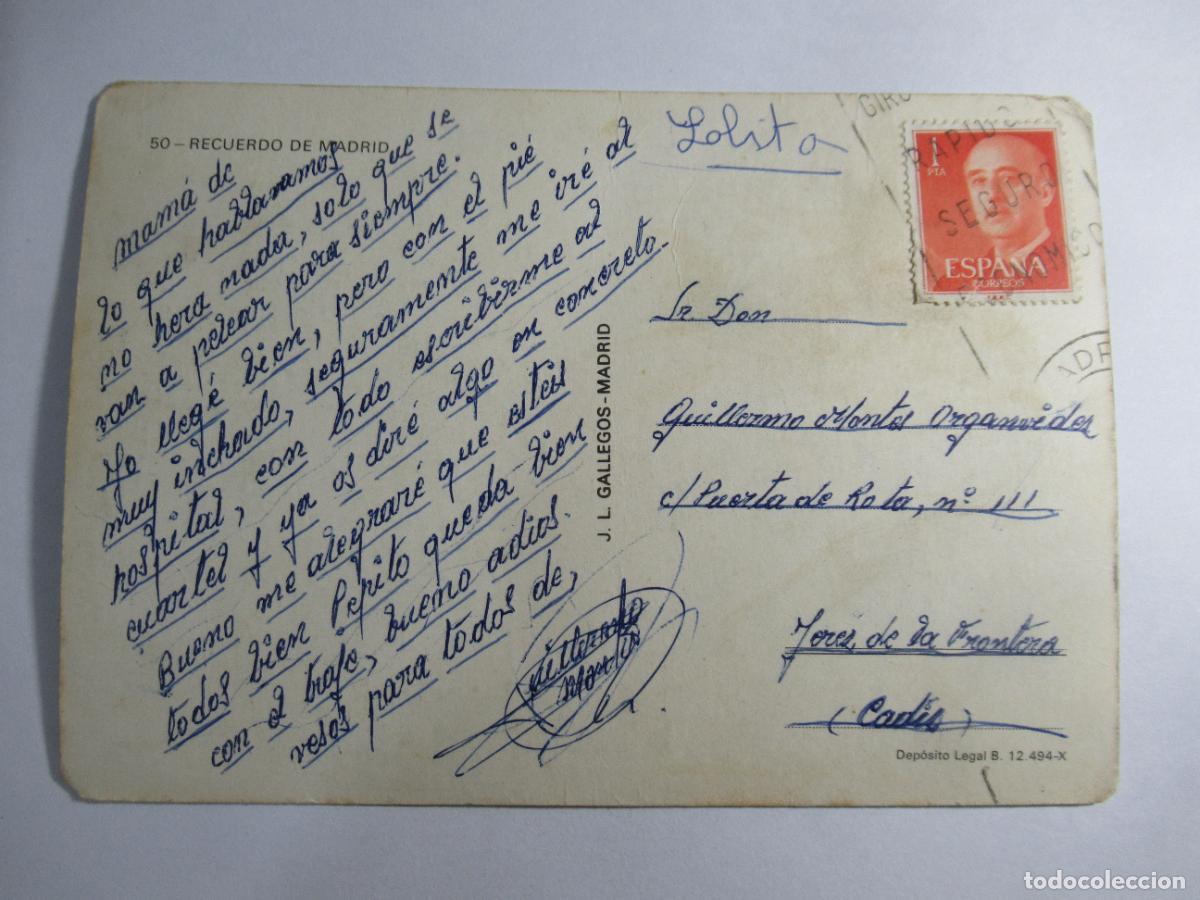 50 – RECUERDO DE MADRID
mamá de
lo que hablaramos
no hera nada, solo que se
van a pelear para siempre.
Yo llegé bien, pero con el pié
muy inchado, seguramente me iré al
hospital, con todo escribirme al
cuartel y ya os diré algo en concreto.
Bueno me alegraré que estéis
todos bien Pepito queda bien
con el traje, bueno adios
vesos para todos de,
J. L. GALLEGOS-MADRID
Lolita
GIRO
RAPIDO
SEGURO
1
PTA
ESPAÑA
CORREOS
Sr. Don
Guillermo Montes Organvides
c/ Puerta de Rota, nº 111
Jerez, de la Frontera
(Cadis)
Depósito Legal B. 12.494-X
todocoleccion